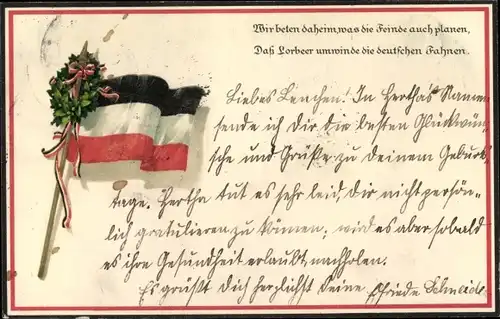 Wir beten daheim, was die Feinde auch planen,
Daß Lorbeer umwinde die deutschen Fahnen.
Liebes Lenchen! In Herthas Namen
sende ich Dir die besten Glückwün-
sche und Grüße zu Deinem Geburts
tage. Hertha tut es sehr leid, dir nicht persön-
lich gratulieren zu können, wird es aber sobald
es ihre Gesundheit erlaubt nachholen.
Es grüßt Dich herzlichst Deine Elfriede